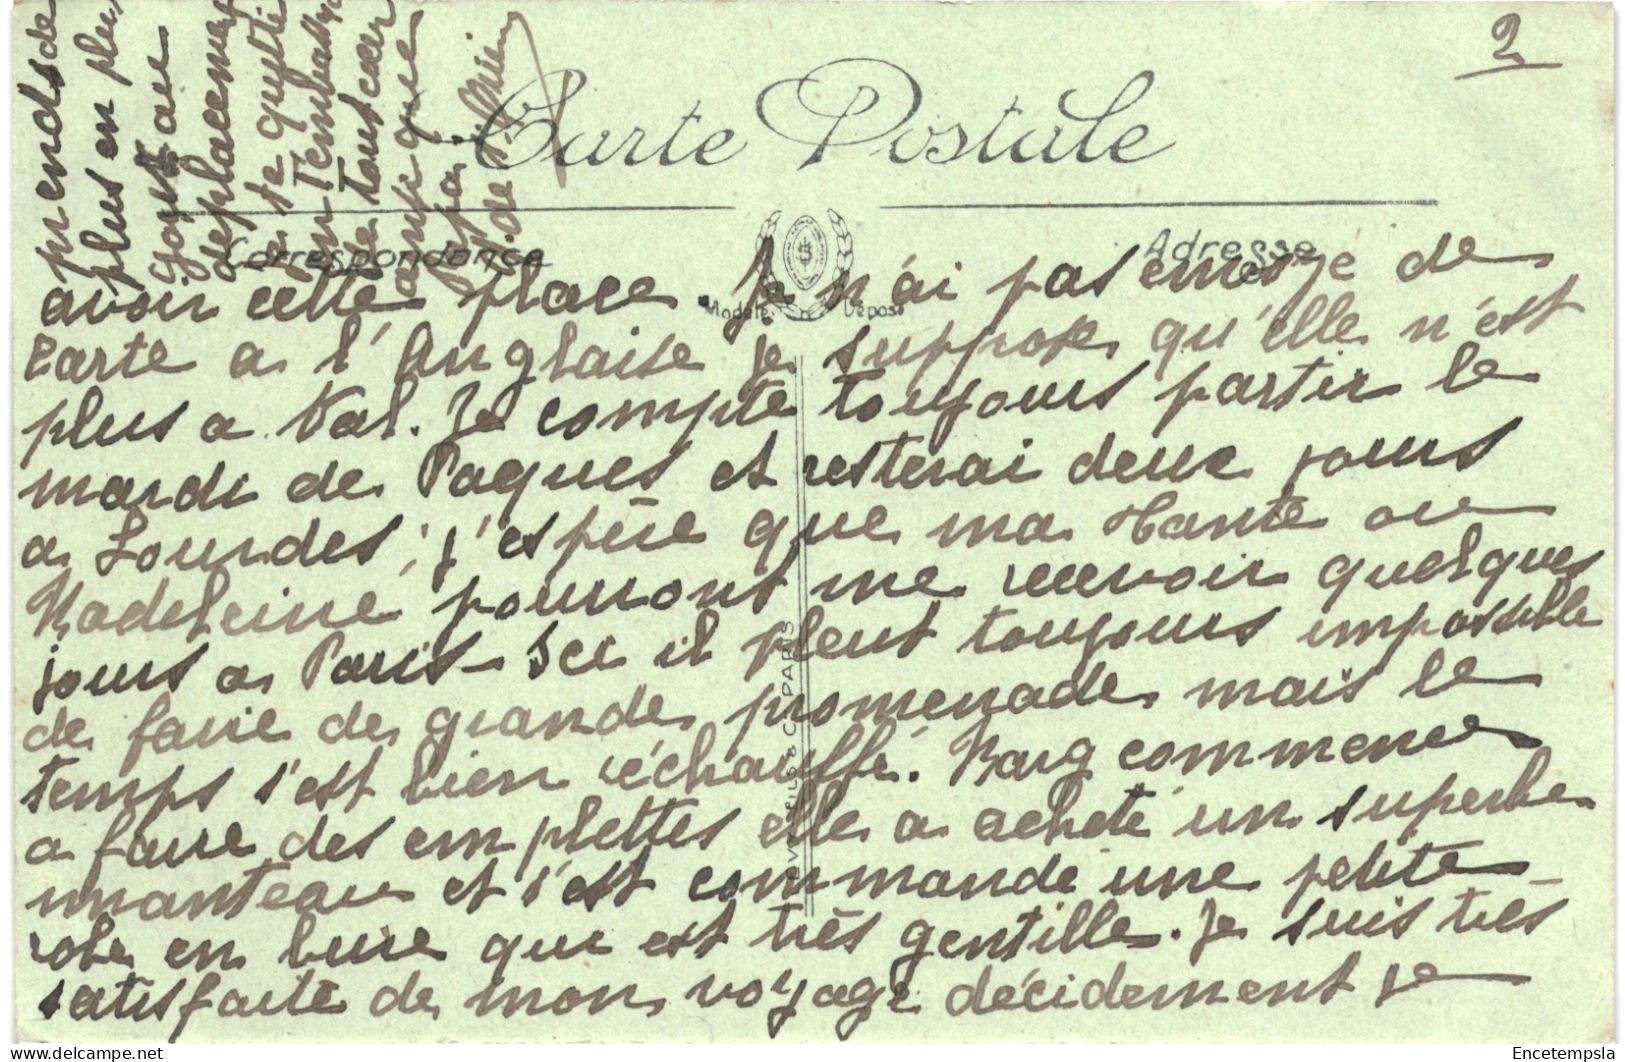 2
Carte Postale
Correspondance
Adresse
Modèle Déposé
avoir cette place. Je n'ai pas envoyé de
carte a l'Anglaise je suppose qu'elle n'est
plus a Val. Je compte toujours partir le
mardi de Paques et resterai deux jours
a Lourdes; j'espère que ma Tante ou
Madeleine pourront me recevoir quelques
jours a Paris - Ici il pleut toujours impossible
de faire de grande promenade mais le
temps s'est bien réchauffé. Marg commence
a faire des emplettes elle a acheté un superbe
manteau et s'est commandé une petite
robe en bure qui est très gentille. Je suis très
satisfaite de mon voyage décidement je
prends de
plus en plus
gout au
deplacement
Je te quitte
en t'embras
de tout cœur
ainsi que
papa
LEVY FILS & Cie PARIS
Encetempsla